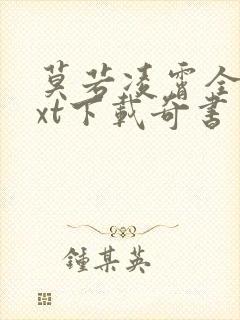 莫若凌霄全
xt下载奇書
鍾某英